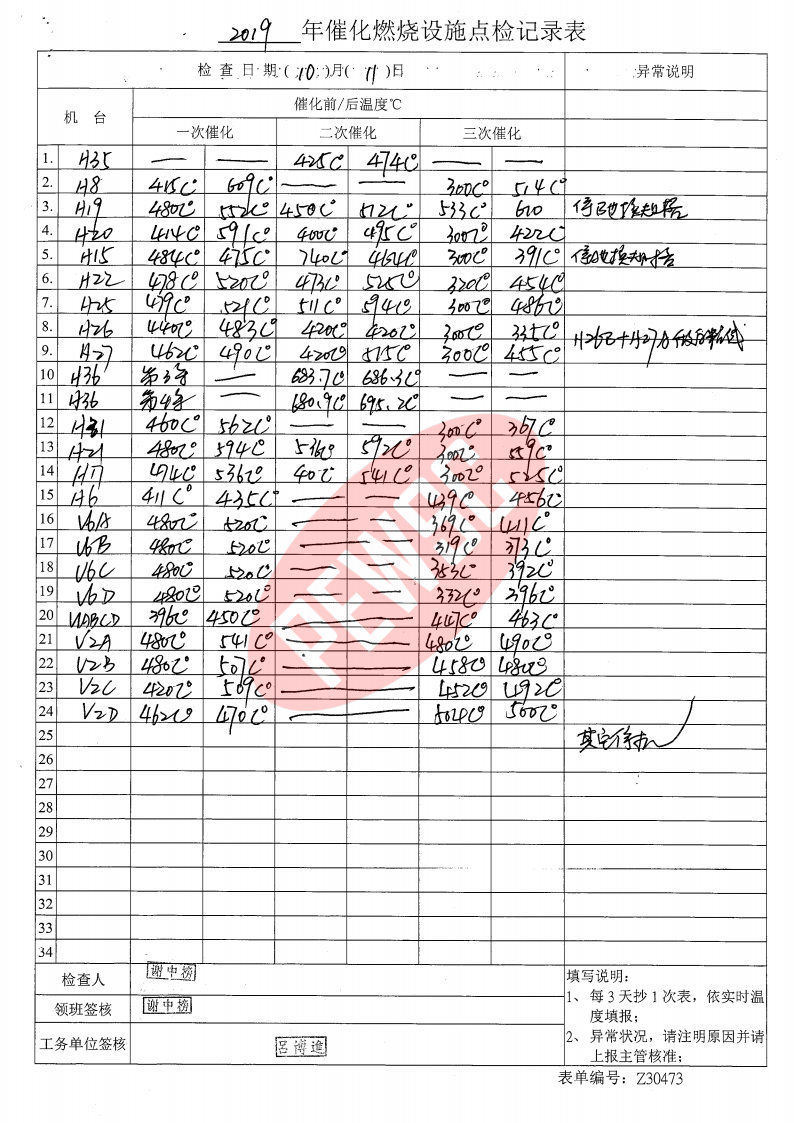 2019 年催化燃烧设施点检记录表
检查日期(10)月(11)日 异常说明
机台 催化前/后温度℃
一次催化 二次催化 三次催化
1. H35 — — 425C° 474C° — —
2. H8 415C° 609C° — — 300C° 514C°
3. H19 480C° 552C° 450C° 512C° 533C° 610
4. H20 414C° 591C° 400C 495C° 300C° 422C°
5. H15 484C° 475C° 740C° 464C° 300C° 391C°
6. H22 478C° 520C° 473C° 525C° 320C° 454C°
7. H25 479C° 521C° 511C° 594C° 300C° 486C°
8. H26 440C° 483C° 420C° 420C° 300C° 335C°
9. H27 462C° 490C° 420C° 515C° 300C° 455C°
10 H36 第3 — 683.7C° 686.3C° — —
11 H36 第4 — 680.9C° 695.2C° — —
12 460C° 562C° — — 300C° 367C°
13 H21 480C° 594C° 536C° 592C° 300C° 559C°
14 H17 474C° 536C° 40C° 541C° 300C° 525C°
15 H6 411C° 435C° — — 439C° 456C°
16 V6A 480C° 520C° — — 369C° 411C°
17 V6B 480C° 520C° — — 319C° 373C°
18 V6C 480C° 520C° — — 353C° 392C°
19 V6D 480C° 520C° — — 332C° 396C°
20 V1ABCD 396C° 450C° — 447C° 463C°
21 V2A 480C° 541C° — 480C° 490C°
22 V2B 480C° 507C° — 458C° 480C°
23 V2C 420C° 509C° — 452C° 492C°
24 V2D 462C° 470C° — 504C° 500C°
25
26
27
28
29
30
31
32
33
34
PEWC
检查人 谢中榜
领班签核 谢中榜
工务单位签核 吕博進
填写说明:
1、每3天抄1次表，依实时温
度填报;
2、异常状况，请注明原因并请
上报主管核准;
表单编号: Z30473